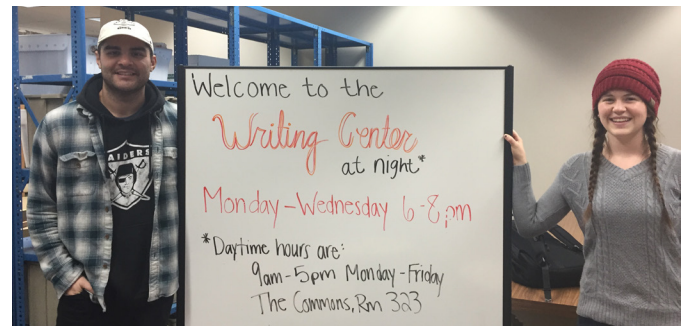 Welcome to the
Writing Center
at night*
Monday-Wednesday 6-8pm
*Daytime hours are:
9am-5pm Monday-Friday
The Commons, Rm 323
RAIDERS